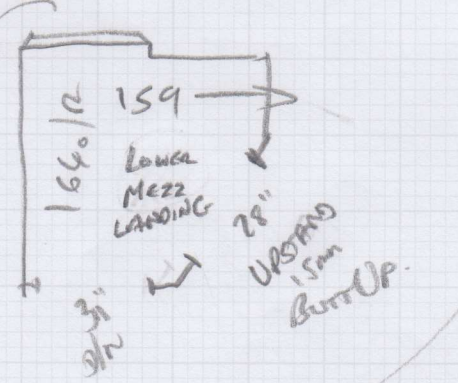 159
164.0/R
LOWER
MEZZ
LANDING
28"
UPSTAND
15mm
BUTT UP.
31"
D/N